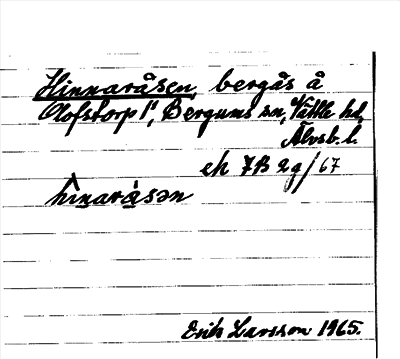 Hinnaråsen, bergås å
Olofstorp 1¹, Bergums sn, Vättle hd,
Älvsb. l.
ek 7B 2g/67
hìnarå̀sən
Erik Larsson 1965.